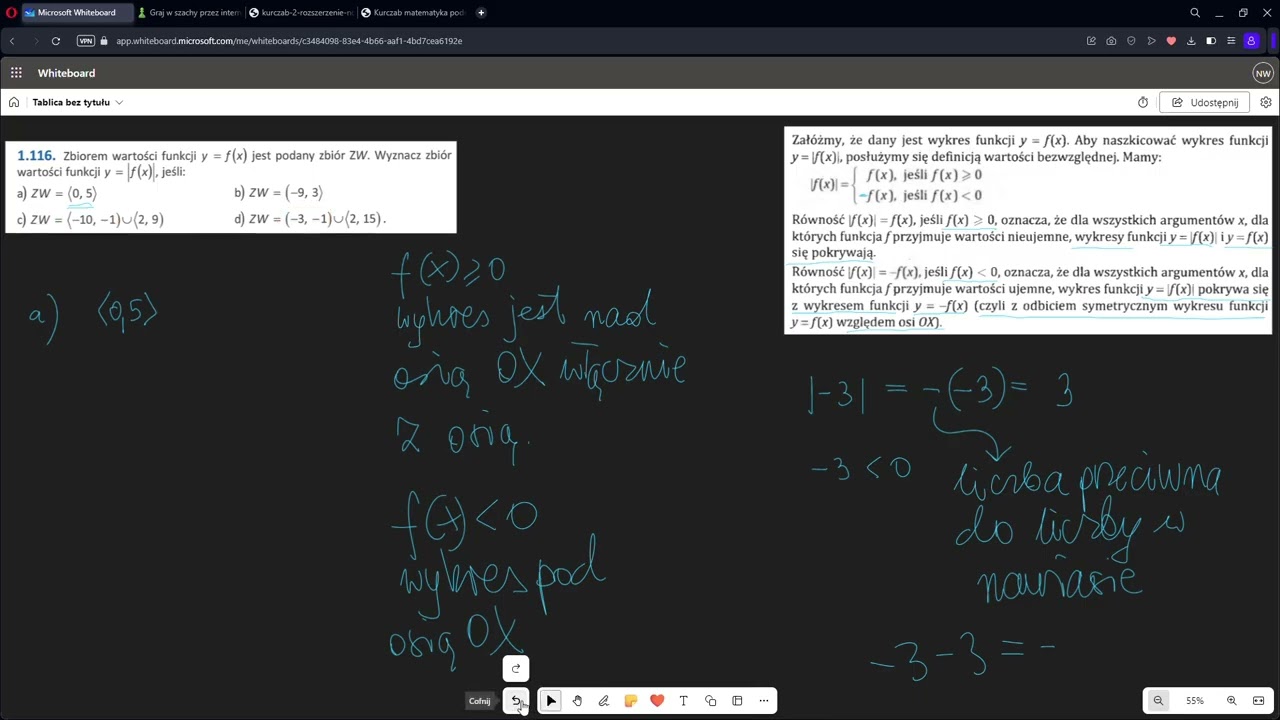 Microsoft Whiteboard
Graj w szachy przez intern
kurczab-2-rozszerzenie-n
Kurczab matematyka pod
VPN
app.whiteboard.microsoft.com/me/whiteboards/c3484098-83e4-4b66-aaf1-4bd7cea6192e
Whiteboard
NW
Tablica bez tytułu
Udostępnij
1.116. Zbiorem wartości funkcji y = f(x) jest podany zbiór ZW. Wyznacz zbiór
wartości funkcji y = |f(x)|, jeśli:
a) ZW = ⟨0, 5⟩
b) ZW = (−9, 3⟩
c) ZW = ⟨−10, −1)∪⟨2, 9)
d) ZW = (−3, −1)∪⟨2, 15).
Załóżmy, że dany jest wykres funkcji y = f(x). Aby naszkicować wykres funkcji
y = |f(x)|, posłużymy się definicją wartości bezwzględnej. Mamy:
|f(x)| = { f(x), jeśli f(x) ⩾ 0
−f(x), jeśli f(x) < 0
Równość |f(x)| = f(x), jeśli f(x) ⩾ 0, oznacza, że dla wszystkich argumentów x, dla
których funkcja f przyjmuje wartości nieujemne, wykresy funkcji y = |f(x)| i y = f(x)
się pokrywają.
Równość |f(x)| = −f(x), jeśli f(x) < 0, oznacza, że dla wszystkich argumentów x, dla
których funkcja f przyjmuje wartości ujemne, wykres funkcji y = |f(x)| pokrywa się
z wykresem funkcji y = −f(x) (czyli z odbiciem symetrycznym wykresu funkcji
y = f(x) względem osi OX).
a) ⟨0,5⟩
f(x) ⩾ 0
wykres jest nad
osią OX włącznie
z osią.
f(x) < 0
wykres pod
osią OX
|−3| = −(−3) = 3
−3 < 0
liczba przeciwna
do liczby w
nawiasie
−3 − 3 = −
Cofnij
T
55%